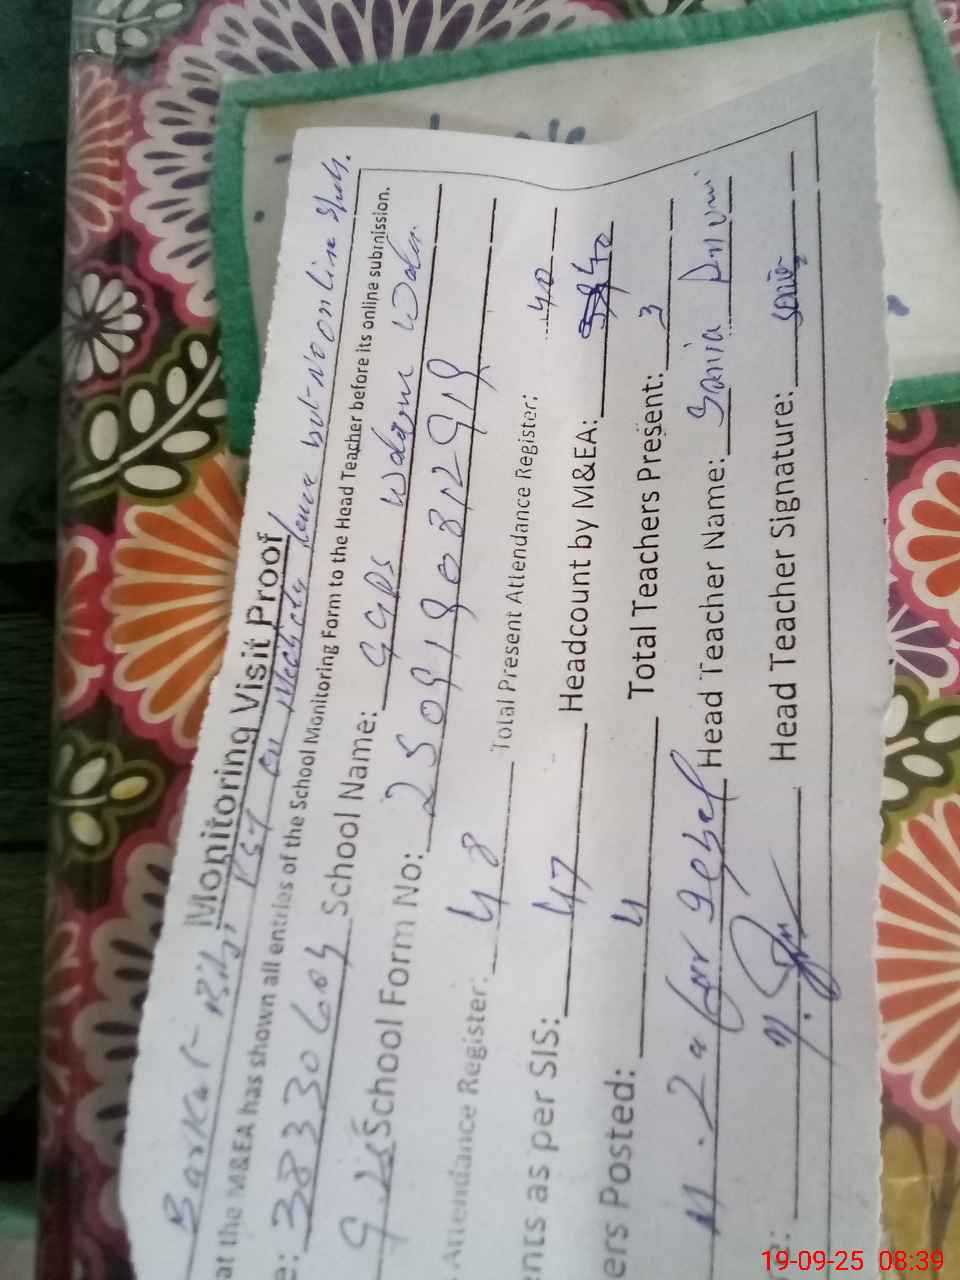 Monitoring Visit Proof
Barkat Bibi PST on Medical leave but No online
at the M&EA has shown all entries of the School Monitoring Form to the Head Teacher before its online submission.
e: 38330604 School Name: GGPS
9 School Form No: 2509190812919
Attendance Register: 48 Total Present Attendance Register: 40
ents as per SIS: 47 Headcount by M&EA: 40
ers Posted: 4 Total Teachers Present: 3
Head Teacher Name: Sania
Head Teacher Signature:
19-09-25 08:39